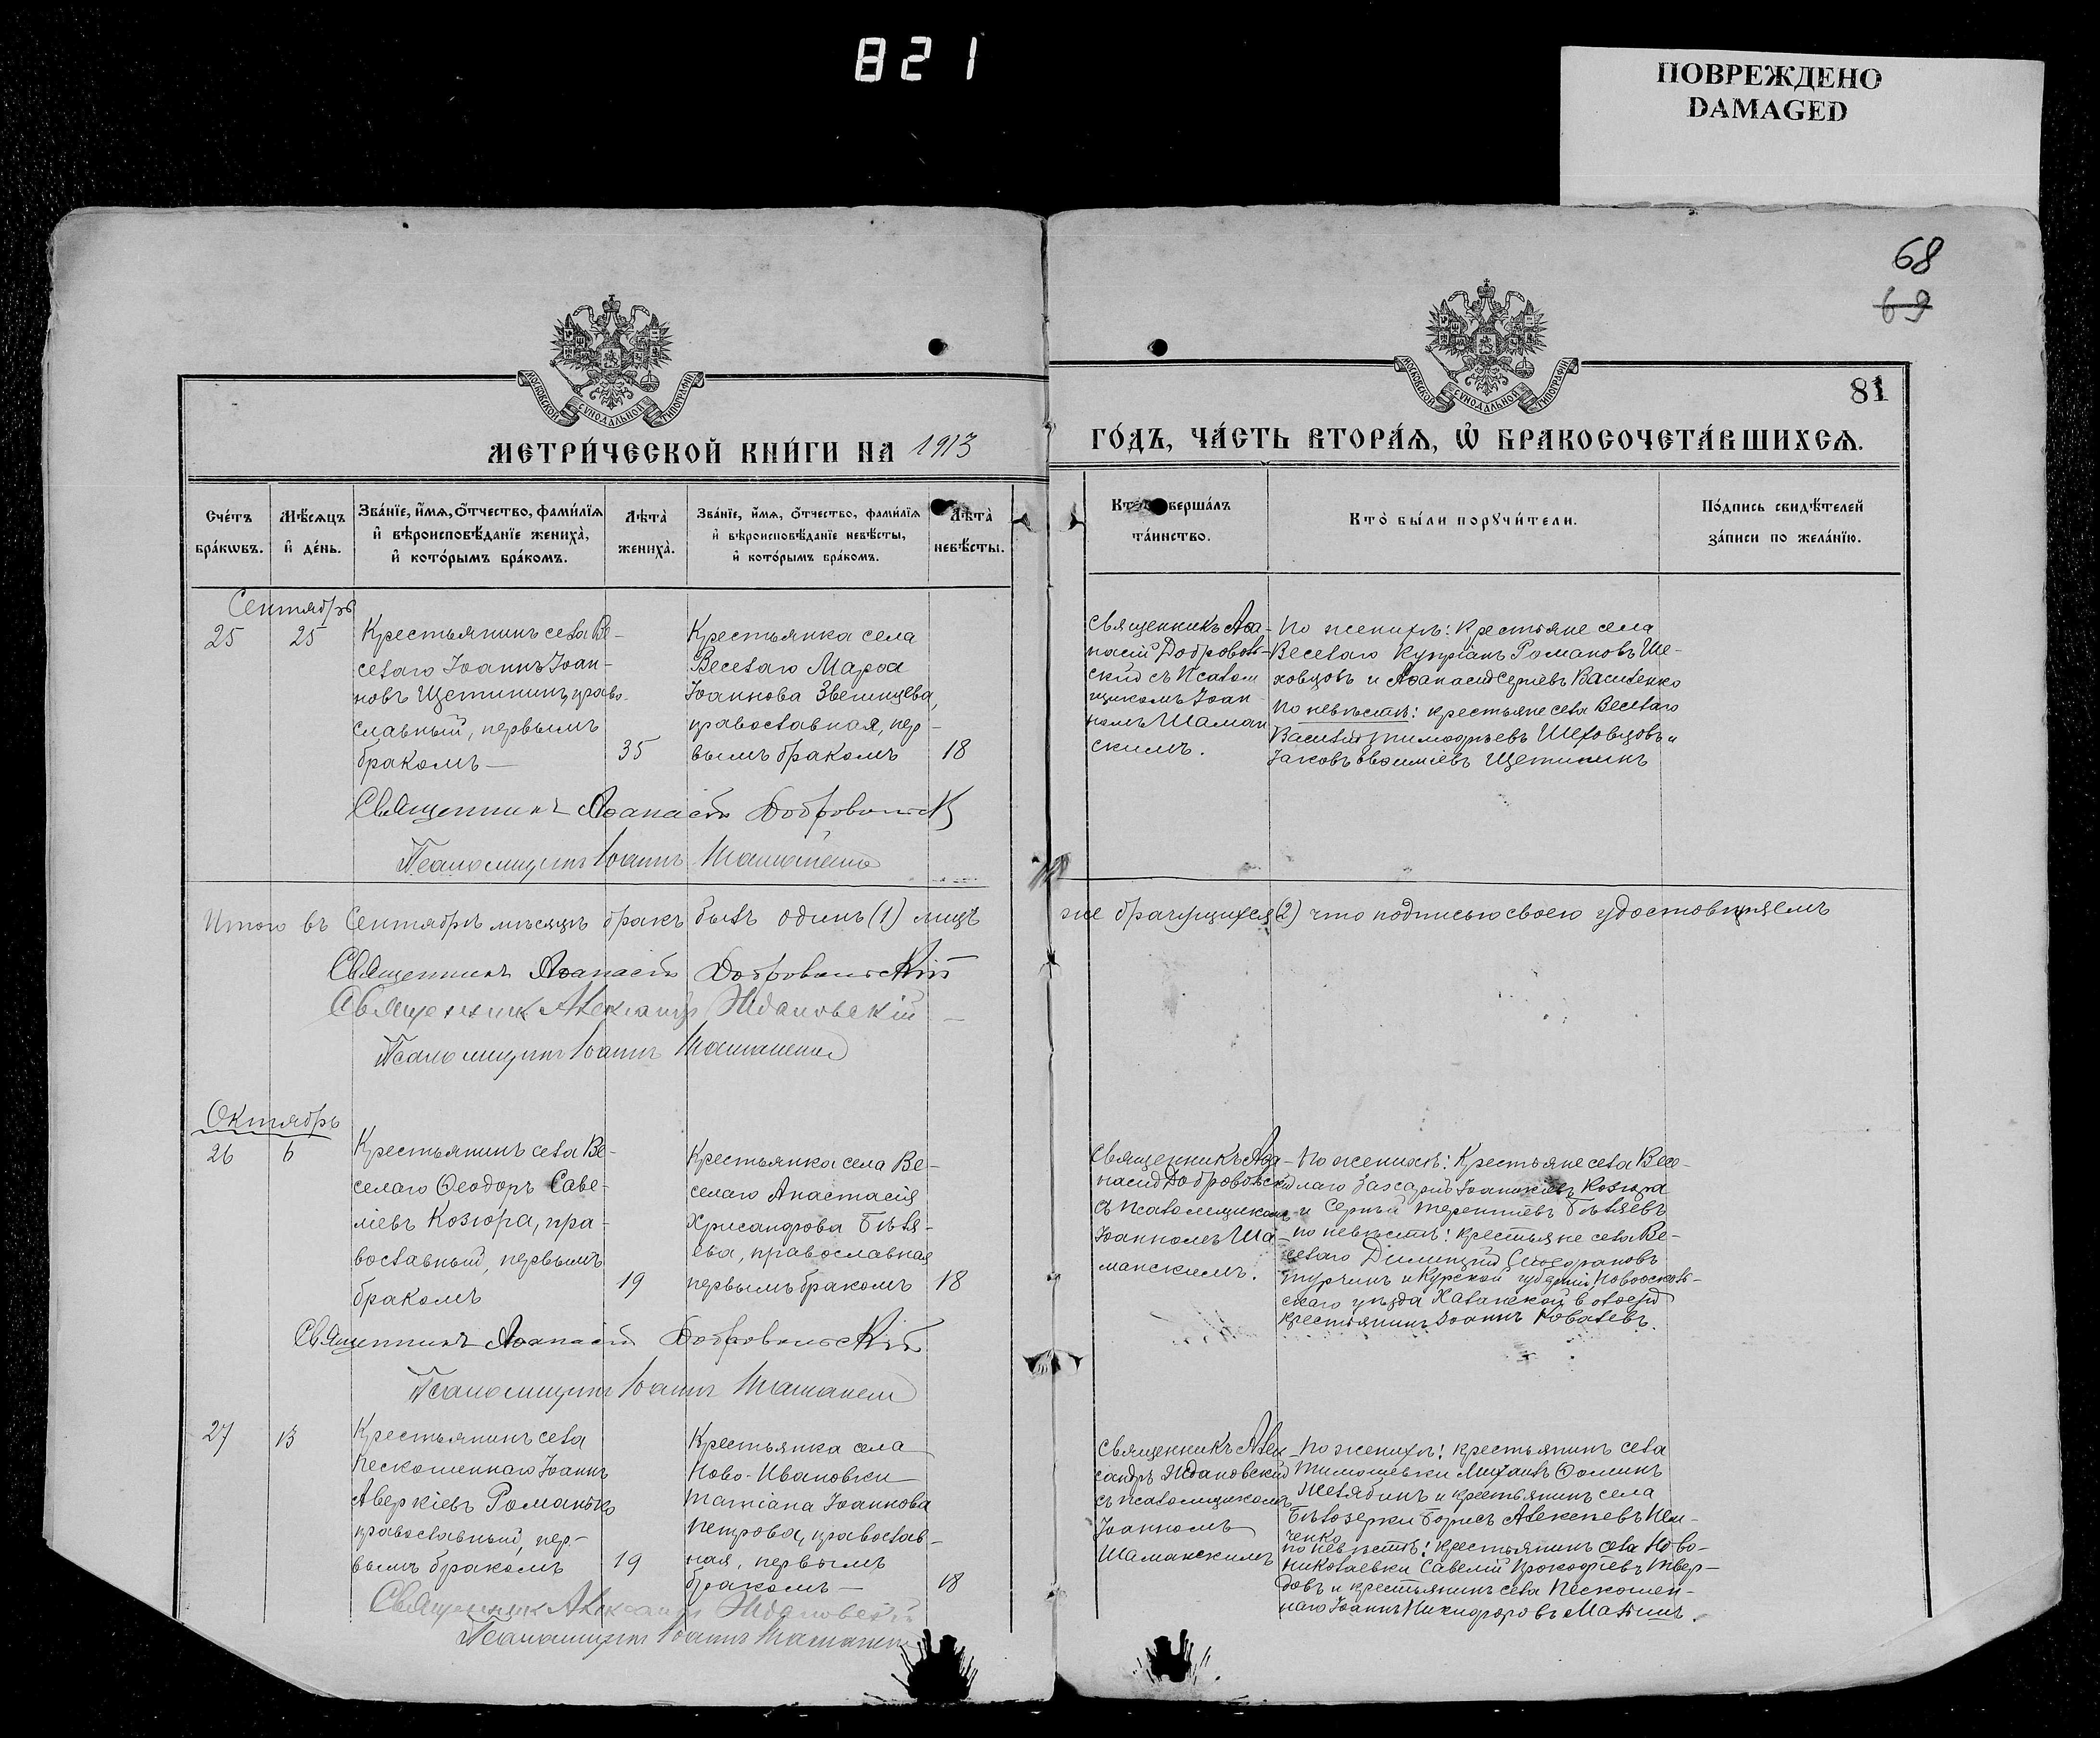 821
ПОВРЕЖДЕНО
DAMAGED
68
69
81
МОСКОВСКОЙ СУНОДАЛЬНОЙ ТИПОГРАФІИ
МОСКОВСКОЙ СУНОДАЛЬНОЙ ТИПОГРАФІИ
МЕТРИ́ЧЕСКОЙ КНИ́ГИ НА 1913
ГО́ДЪ, ЧА́СТЬ ВТОРА́Ѧ, Ѽ БРАКОСОЧЕТА́ВШИХСѦ.
Сче́тъ бра́кѡвъ.
Мѣ́сѧцъ и҆ де́нь.
Зва́нїе, и҆́мѧ, ѻ҆́тчество, фами́лїѧ
и҆ вѣроисповѣ́данїе жениха̀,
и҆ кото́рымъ бра́комъ.
Лѣ́та̀ жениха̀.
Зва́нїе, и҆́мѧ, ѻ҆́тчество, фами́лїѧ
и҆ вѣроисповѣ́данїе невѣ́сты,
и҆ кото́рымъ бра́комъ.
Лѣ́та̀ невѣ́сты.
вершáлъ
та́инство.
Кто̀ бы́ли порꙋчи́тели.
По́дпись свидѣ́телей
за́писи по жела́нїю.
Сентябрь
25 25
Крестьянинъ села Ве-
селаго Іоаннъ Іоан-
новъ Щетининъ, право-
славный, первымъ
бракомъ — 35
Крестьянка села
Веселаго Марѳа
Іоаннова Звегинцева,
православная, пер-
вымъ бракомъ 18
Священникъ Аѳа-
насій Добровол-
скій съ Псалом
щикомъ Іоан
номъ Шаман
скимъ.
По женихѣ: Крестьяне села
Веселаго Купріанъ Романовъ Ше-
ховцовъ и Аѳанасій Сергіевъ Василенко
По невѣстѣ: крестьяне села Веселаго
Василій Тимоѳѣевъ Шеховцовъ и
Іаковъ Евѳиміевъ Щетининъ
Священникъ Аѳанасій Добровольскій
Псаломщикъ Іоаннъ Шаманскій
Итого въ Сентябрѣ мѣсяцѣ бракъ былъ одинъ (1) лицъ
же брачущихся (2) что подписью своею удостовѣряемъ
Священникъ Аѳанасій Добровольскій
Священник Александр Ждановскій
Псаломщикъ Іоаннъ Шаманскій
Октябрь
26 6
Крестьянинъ села Ве-
селаго Ѳеодоръ Саве-
ліевъ Козюра, пра-
вославный, первымъ
бракомъ 19
Крестьянка села Ве-
селаго Анастасія
Хрисанѳова Бѣля-
ева, православная
первымъ бракомъ 18
Священникъ Аѳа-
насій Добровольскій
съ псаломщикомъ
Іоанномъ Ша-
манскимъ.
По женихѣ: Крестьяне села Весе-
лаго Захарій Іоанникіевъ Козюра
и Сергѣй Терентіевъ Бѣляевъ
по невѣстѣ: крестьяне села Ве-
селаго Димитрій
Турчинъ и Курской губерніи Новооскол-
скаго уѣзда Халанской волости
крестьянинъ Іоаннъ Ковалевъ.
Священникъ Аѳанасій Добровольскій
Псаломщикъ Іоаннъ Шаманскій
27 13
Крестьянинъ села
Нескошеннаго Іоаннъ
Аверкіевъ Романько
православный, пер-
вымъ бракомъ 19
Крестьянка села
Ново-Ивановки
Татіана Іоаннова
Петрова, православ-
ная, первымъ
бракомъ — 18
Священникъ Алек
сандръ Ждановскій
съ псаломщикомъ
Іоанномъ
Шаманскимъ
По женихѣ: крестьянинъ села
Тимошевки Михаилъ Ѳоминъ
Желябинъ и крестьянинъ села
Бѣлозерки Борисъ Алексѣевъ
ченко
по невѣстѣ: крестьянинъ села Ново-
николаевки Савелій Прокофіевъ Твер-
довъ и крестьянинъ села Нескошен-
наго Іоаннъ Никифоровъ
Священник Александр Ждановскій
Псаломщикъ Іоаннъ Шаманскій